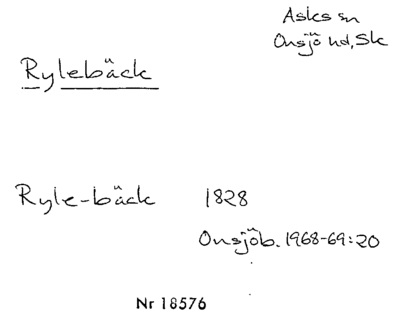 Asks sn
Onsjö hd, Sk
Rylebäck
Ryle-bäck 1828
Onsjöb. 1968-69:20
Nr 18576